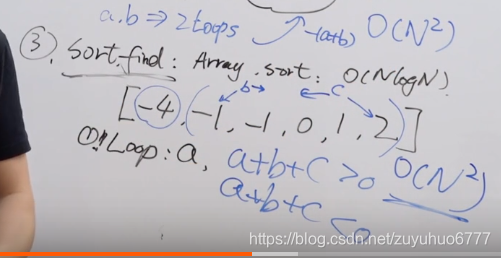 a.b ⇒ 2 Loops → -(a+b) O(N²)
③. Sort.find: Array.sort: O(NlogN)
b→ ←C
[-4, (-1, -1, 0, 1, 2)]
① Loop: a, a+b+C >0 O(N²)
a+b+C <0
https://blog.csdn.net/zuyuhuo6777